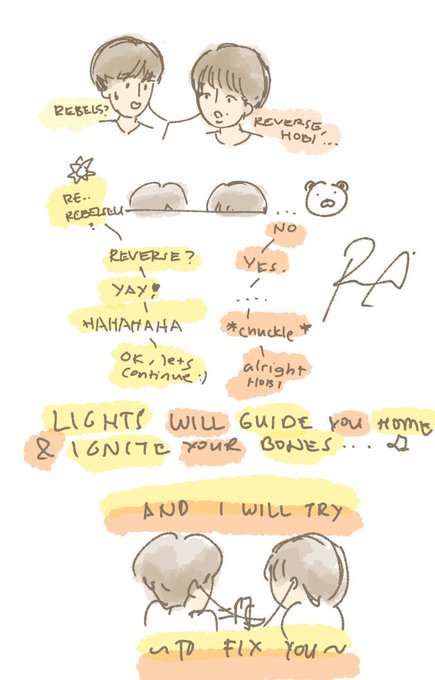 REBELS?
REVERSE,
HOBI...
RE..
REBELSEU
?
...
NO
REVERSE?
YES.
YAY!
....
HAHAHAHA
*chuckle*
OK, lets
continue :)
alright
HOBI
LIGHTS WILL GUIDE YOU HOME
& IGNITE YOUR BONES...
AND I WILL TRY
~TO FIX YOU~